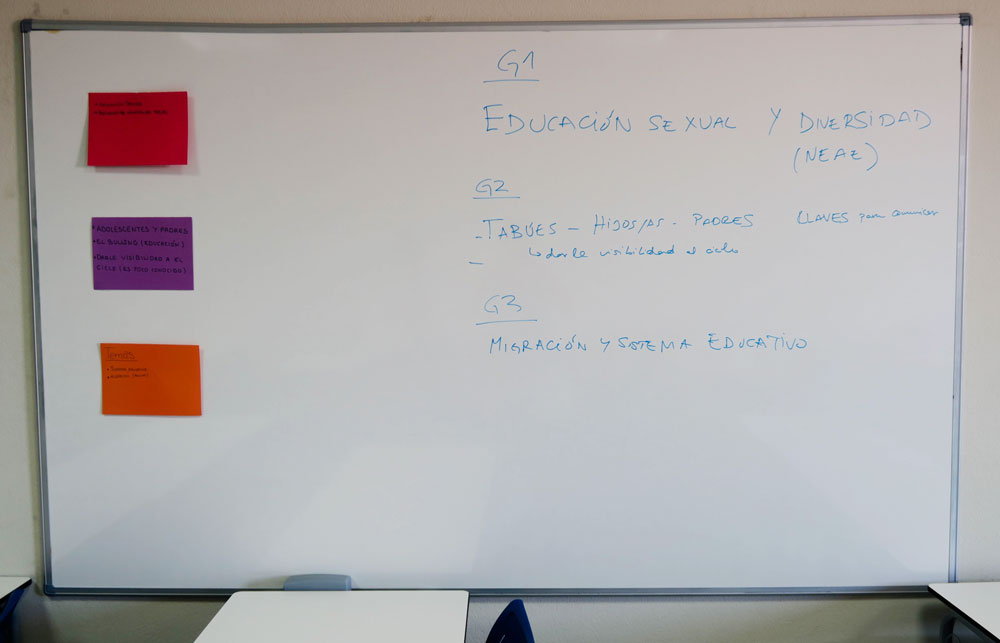 • ADOLESCENTES Y PADRES
• EL BULLING (EDUCACIÓN)
• DARLE VISIBILIDAD A EL
CICLO (ES POCO CONOCIDO)
Temas
G1
EDUCACIÓN SEXUAL Y DIVERSIDAD
(NEAE)
G2
- TABÚES - HIJOS/AS - PADRES CLAVES para comunicar
↳ darle visibilidad al ciclo
-
G3
MIGRACIÓN Y SISTEMA EDUCATIVO